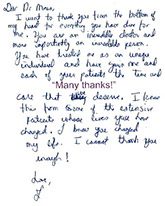 Dear Dr. Moran,
I want to thank you from the bottom of
my heart for everything you have done for
me. You are an incredible doctor and
more importantly an incredible person.
You have treated me as an unique
individual and have given me and
each of your patients the time and
"Many thanks!"
care that deserve. I know
this from some of the extensive
patients whose lives you have
changed. I know you changed
my life. I cannot thank you
enough!
Love,
L